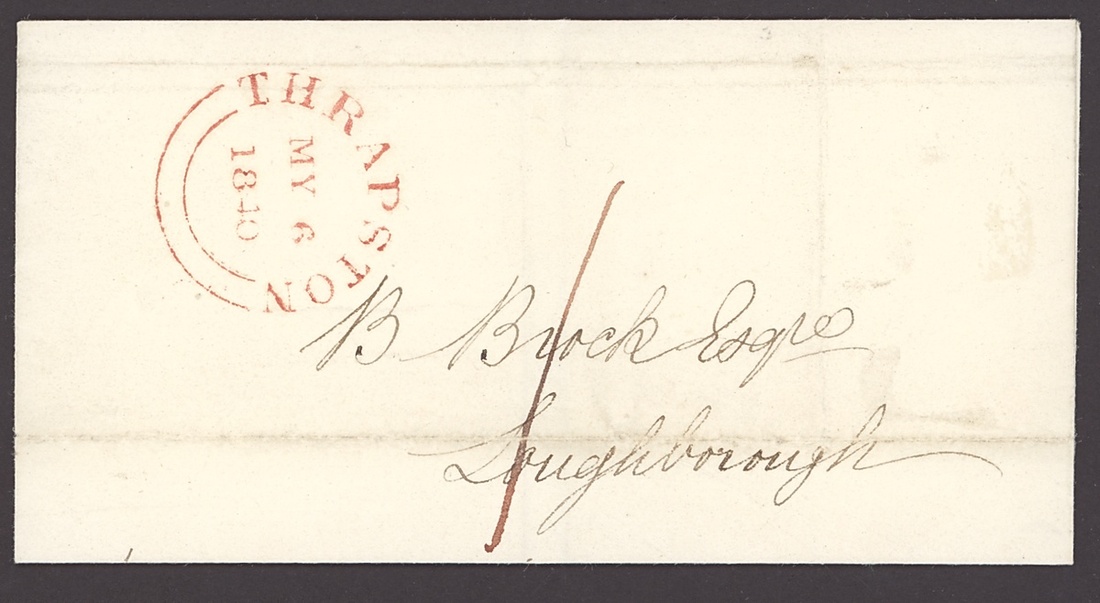 THRAPSTON
MY 6
1840
B Brock Esqre
Loughborough